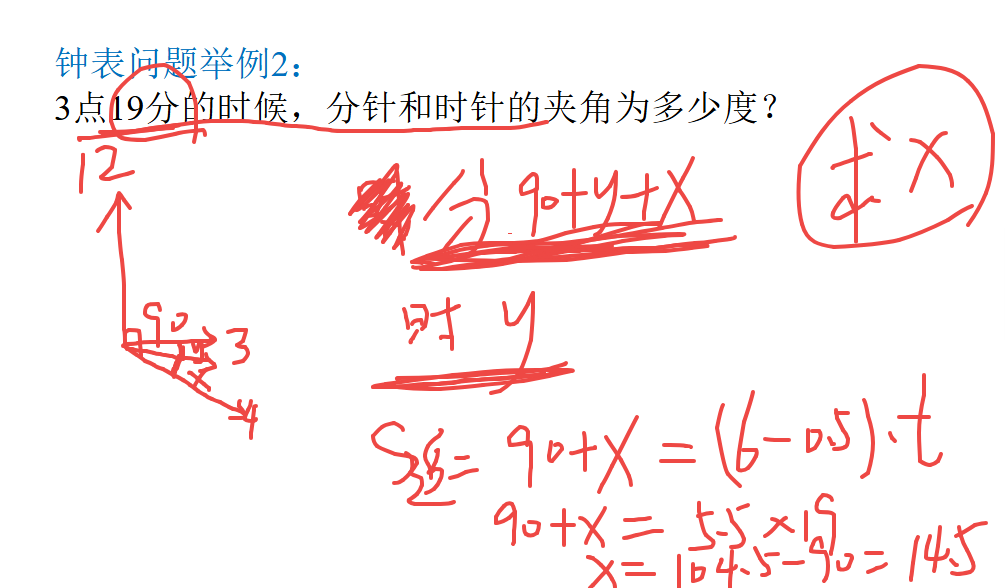 钟表问题举例2：
3点19分的时候，分针和时针的夹角为多少度？
12
分 90+y+x
求 x
时 y
90
3
y
x
4
S追= 90+x = (6-0.5).t
90+x = 5.5×19
x=104.5-90=14.5